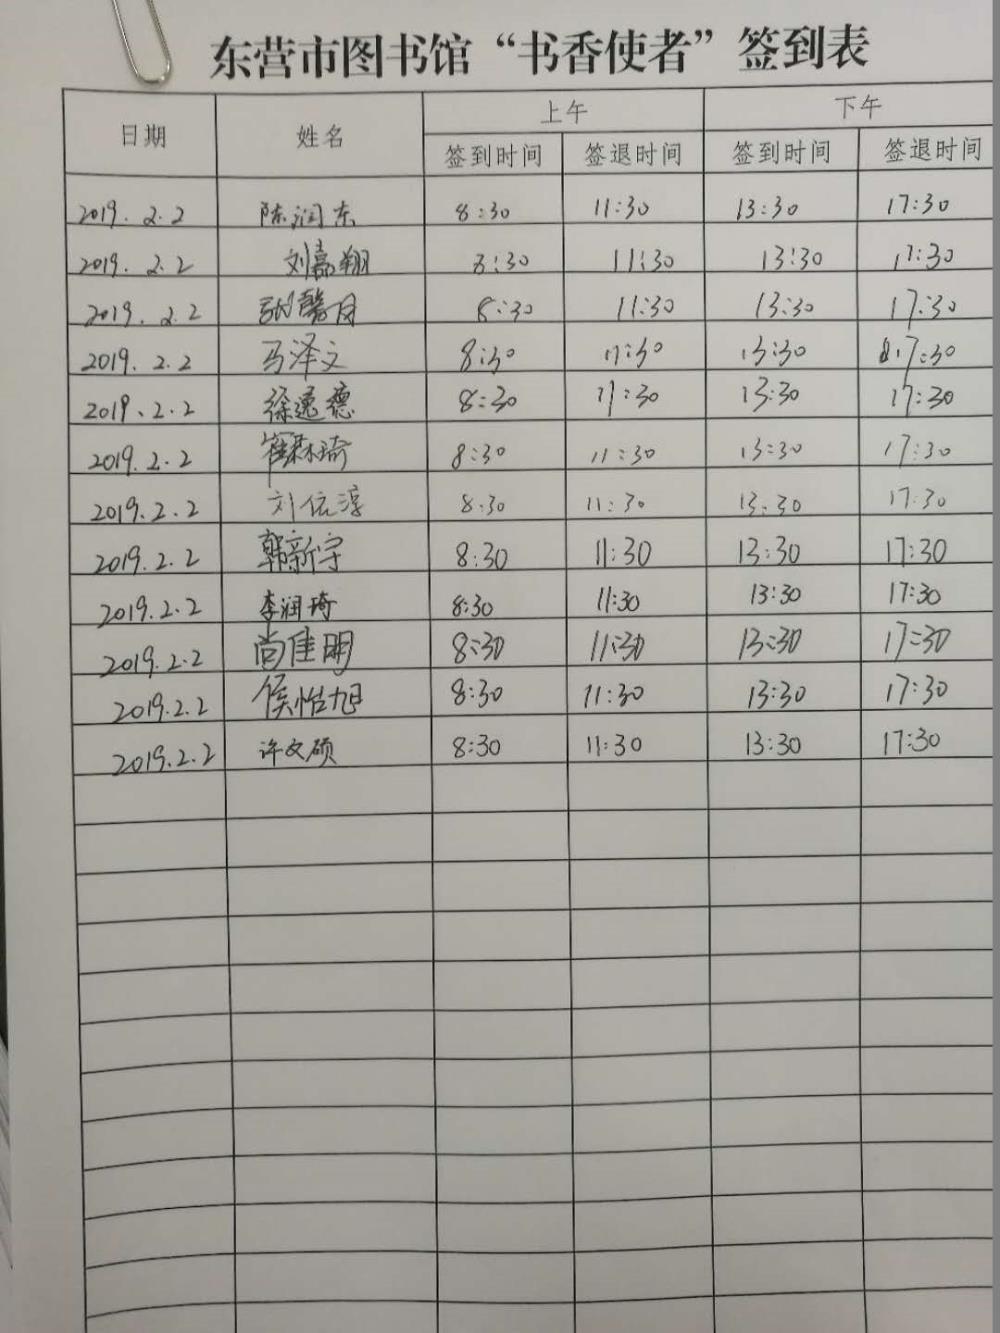 东营市图书馆“书香使者”签到表
日期 姓名 上午 下午
签到时间 签退时间 签到时间 签退时间
2019.2.2 陈润东 8:30 11:30 13:30 17:30
2019.2.2 刘嘉翔 8:30 11:30 13:30 17:30
2019.2.2 张馨月 8:30 11:30 13:30 17:30
2019.2.2 马泽文 8:30 11:30 13:30 17:30
2019.2.2 徐逸德 8:30 11:30 13:30 17:30
2019.2.2 崔霖琦 8:30 11:30 13:30 17:30
2019.2.2 刘依淳 8:30 11:30 13:30 17:30
2019.2.2 郭新宇 8:30 11:30 13:30 17:30
2019.2.2 李润琦 8:30 11:30 13:30 17:30
2019.2.2 尚佳明 8:30 11:30 13:30 17:30
2019.2.2 侯怡旭 8:30 11:30 13:30 17:30
2019.2.2 许文硕 8:30 11:30 13:30 17:30